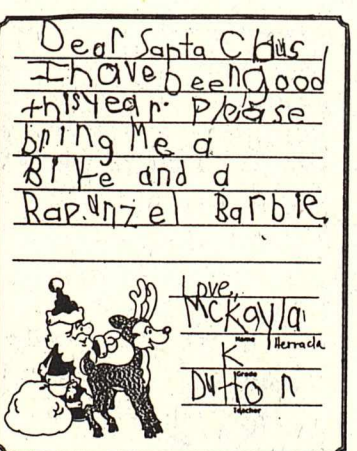 Dear Santa Claus
I have been good
this year. Please
bring Me a
Bike and a
Rapunzel Barbie.
Love,
McKayla
Name
Herrada
K
Grade
Dutton
Teacher